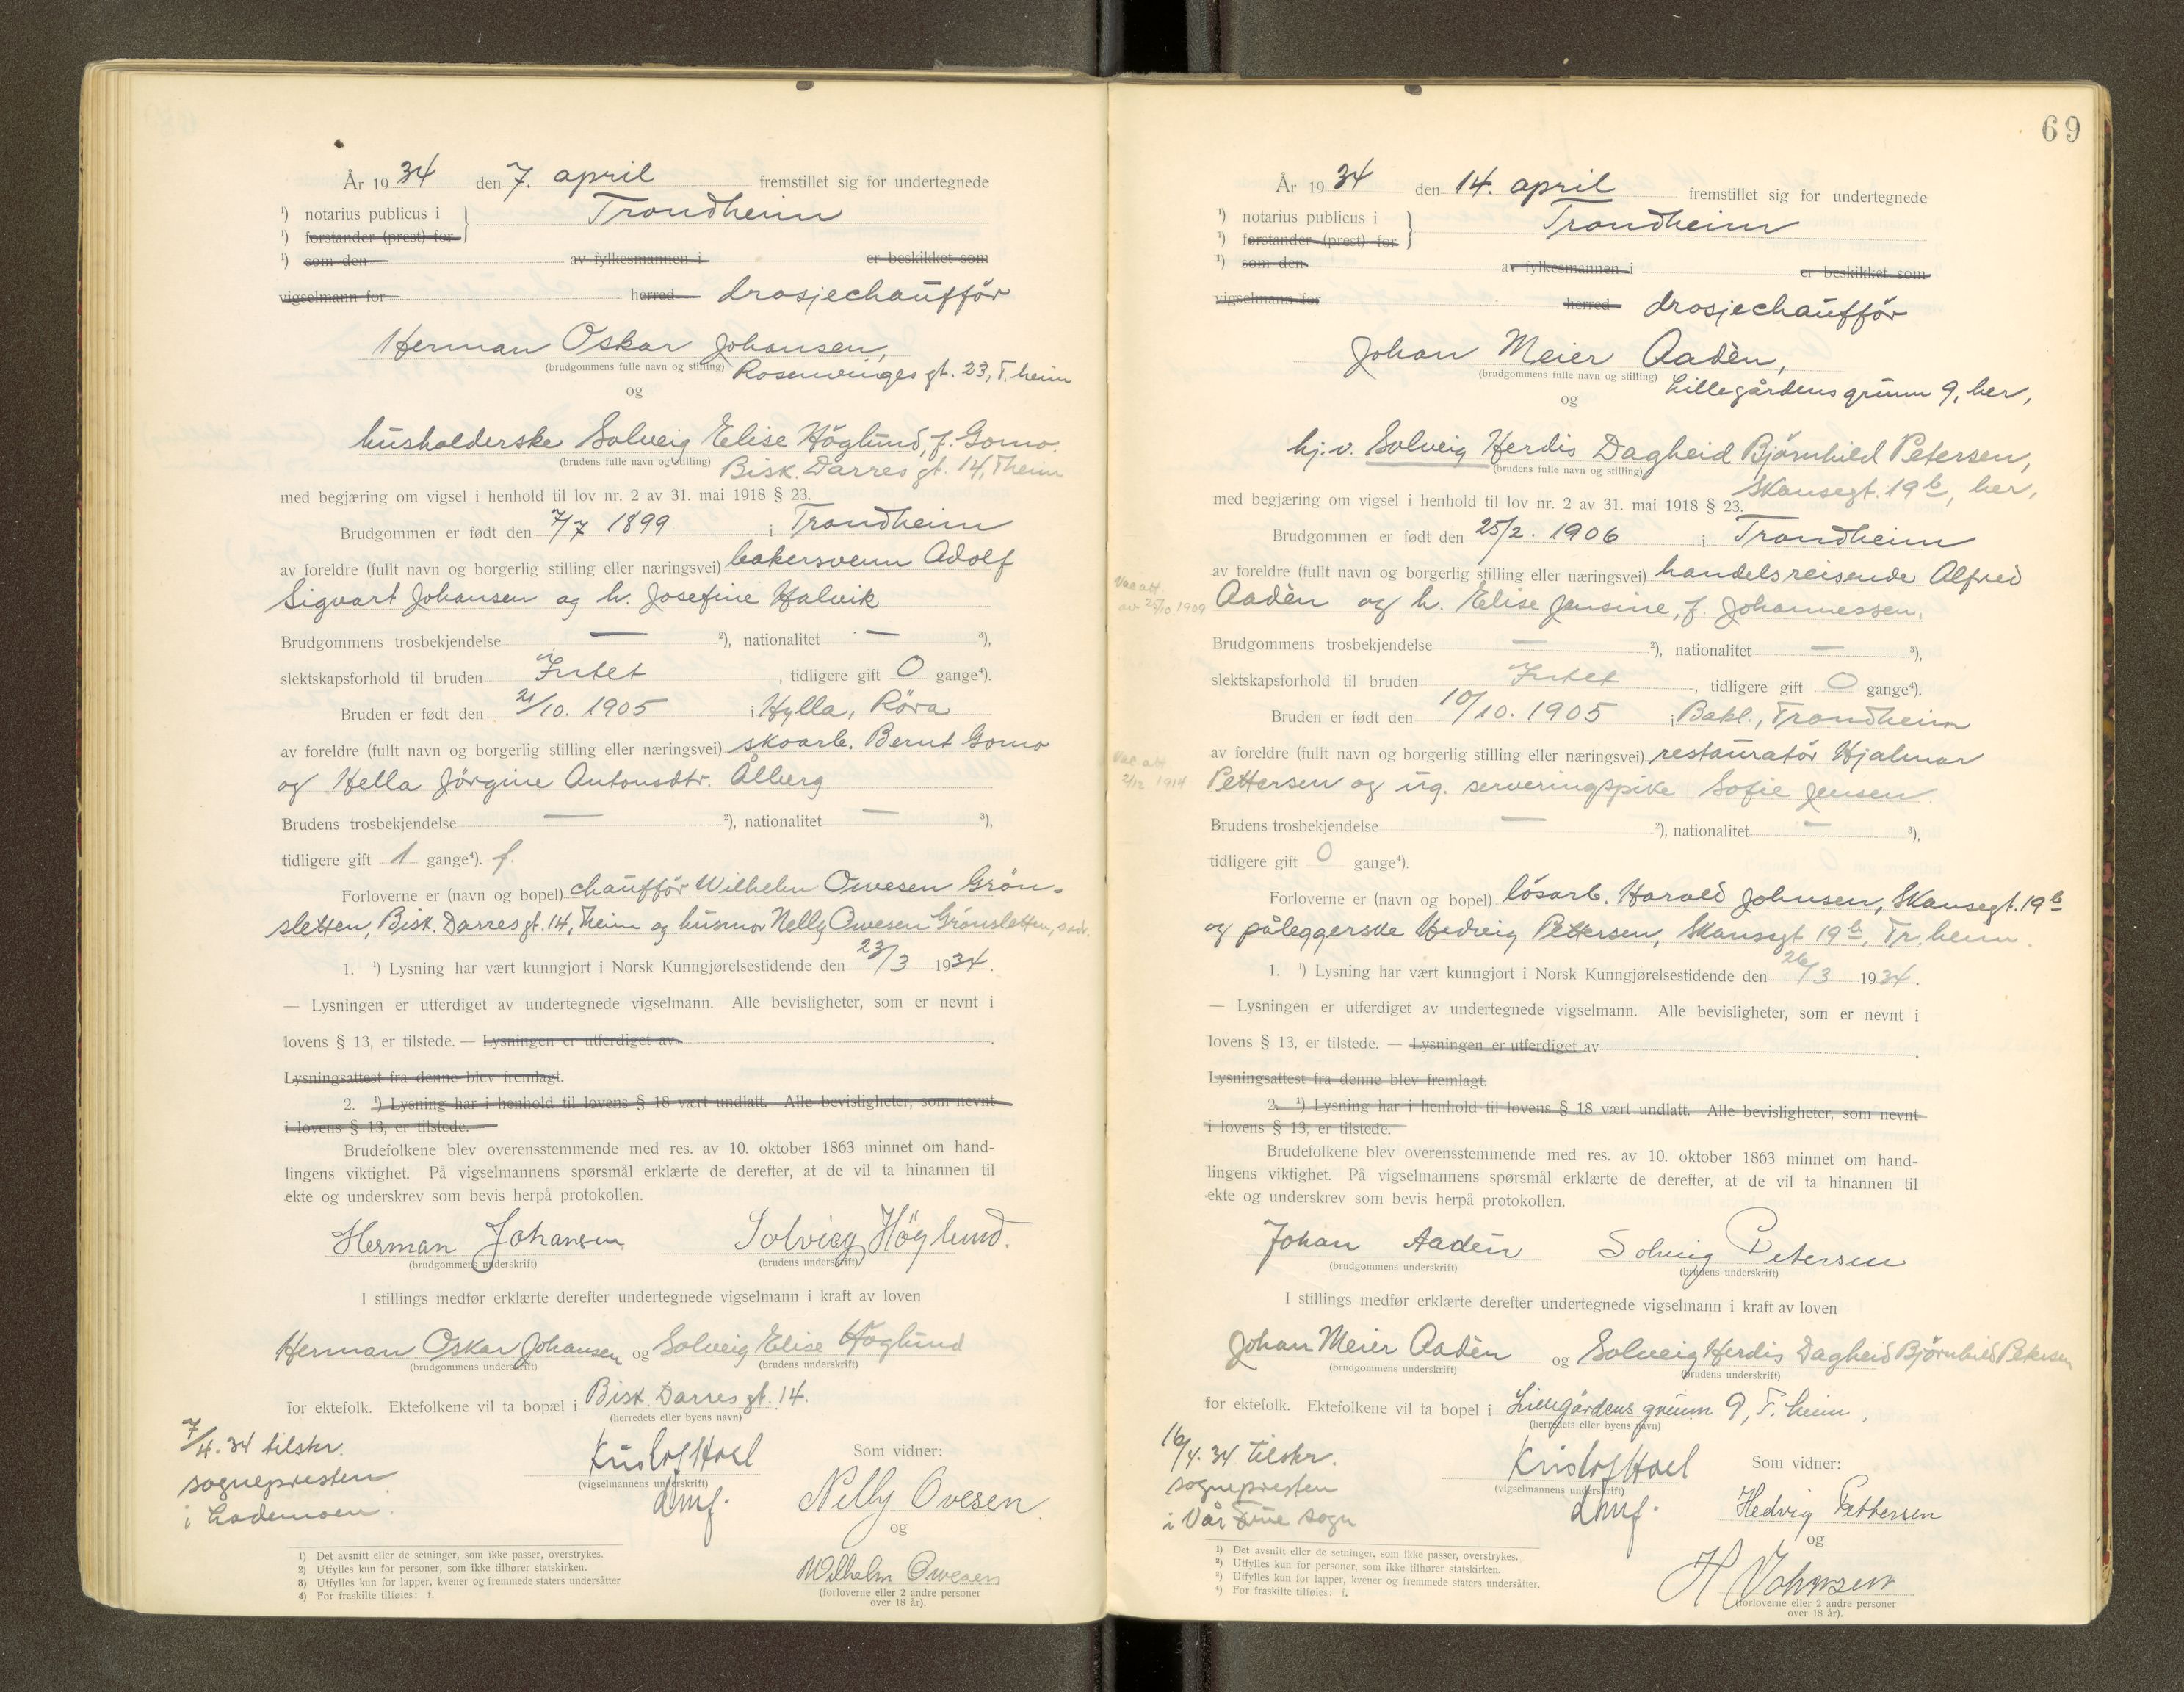 År 1934 den 7. april fremstillet sig for undertegnede
1) notarius publicus i } Trondheim
1) forstander (prest) for
1) som den av fylkesmannen i er beskikket som
vigselmann for herred drosjechaufför
Herman Oskar Johansen,
(brudgommens fulle navn og stilling) Rosenvinges gt. 23, T.heim
og
husholderske Solveig Elise Höglund, f. Gomo.
(brudens fulle navn og stilling) Bisk. Darres gt. 14, Theim
med begjæring om vigsel i henhold til lov nr. 2 av 31. mai 1918 § 23.
Brudgommen er født den 7/7 1899 i Trondheim
av foreldre (fullt navn og borgerlig stilling eller næringsvei) bakersvenn Adolf
Sigvart Johansen og h. Josefine Halvik
Brudgommens trosbekjendelse — 2), nationalitet — 3),
slektskapsforhold til bruden Intet, tidligere gift 0 gange4).
Bruden er født den 21/10. 1905 i Hylla, Röra
av foreldre (fullt navn og borgerlig stilling eller næringsvei) skoarb. Bernt Gomo
og Hella Jörgine Antonsdtr. Ålberg
Brudens trosbekjendelse — 2), nationalitet — 3),
tidligere gift 1 gange4). f.
Forloverne er (navn og bopel) chaufför Wilhelm Owesen Grön-
sletten, Bisk. Darres gt. 14, Theim og husmor Nelly Owesen Grönsletten,
1. 1) Lysning har vært kunngjort i Norsk Kunngjørelsestidende den 23/3 1934.
— Lysningen er utferdiget av undertegnede vigselmann. Alle bevisligheter, som er nevnt i
lovens § 13, er tilstede. — Lysningen er utferdiget av .
Lysningsattest fra denne blev fremlagt.
2. 1) Lysning har i henhold til lovens § 18 vært undlatt. Alle bevisligheter, som nevnt
i lovens § 13, er tilstede.
Brudefolkene blev overensstemmende med res. av 10. oktober 1863 minnet om hand-
lingens viktighet. På vigselmannens spørsmål erklærte de derefter, at de vil ta hinannen til
ekte og underskrev som bevis herpå protokollen.
Herman Johansen Solvieg Höglund.
(brudgommens underskrift) (brudens underskrift)
I stillings medfør erklærte derefter undertegnede vigselmann i kraft av loven
Herman Oskar Johansen og Solveig Elise Höglund
(brudgommens underskrift) (brudens underskrift)
for ektefolk. Ektefolkene vil ta bopæl i Bisk. Darres gt. 14.
(herredets eller byens navn)
7/4. 34 tilskr.
sognepresten
i Lademoen.
Kristof Hoel
(vigselmannens underskrift)
dmf.
Som vidner:
Nelly Ovesen.
og
Wilhelm Owesen
(forloverne eller 2 andre personer
over 18 år).
1) Det avsnitt eller de setninger, som ikke passer, overstrykes.
2) Utfylles kun for personer, som ikke tilhører statskirken.
3) Utfylles kun for lapper, kvener og fremmede staters undersåtter
4) For fraskilte tilføies: f.
69
År 1934 den 14. april fremstillet sig for undertegnede
1) notarius publicus i } Trondheim
1) forstander (prest) for
1) som den av fylkesmannen i er beskikket som
vigselmann for herred drosjechaufför
Johan Meier Aadèn,
(brudgommens fulle navn og stilling) Lillegårdensgrunn 9, her,
og
hj.v. Solveig Herdis Dagheid Björnhild Petersen,
(brudens fulle navn og stilling) Skansegt. 19b, her,
med begjæring om vigsel i henhold til lov nr. 2 av 31. mai 1918 § 23.
Brudgommen er født den 25/2. 1906 i Trondheim
av foreldre (fullt navn og borgerlig stilling eller næringsvei) handelsreisende Alfred
Vac.att. av 25/10. 1909
Aadèn og h. Elise Jensine, f. Johannessen.
Brudgommens trosbekjendelse — 2), nationalitet — 3),
slektskapsforhold til bruden Intet, tidligere gift 0 gange4).
Bruden er født den 10/10. 1905 i Bakl., Trondheim
av foreldre (fullt navn og borgerlig stilling eller næringsvei) restauratör Hjalmar
Vac.att 2/12 1914
Pettersen og ug. serveringspike Sofie Jensen.
Brudens trosbekjendelse — 2), nationalitet — 3),
tidligere gift 0 gange4).
Forloverne er (navn og bopel) lösarb. Harald Johnsen, Skansegt. 19b
og påleggerske Hedvig Pettersen, Skansegt 19b, Tr.heim.
1. 1) Lysning har vært kunngjort i Norsk Kunngjørelsestidende den 26/3 1934.
— Lysningen er utferdiget av undertegnede vigselmann. Alle bevisligheter, som er nevnt i
lovens § 13, er tilstede. — Lysningen er utferdiget av .
Lysningsattest fra denne blev fremlagt.
2. 1) Lysning har i henhold til lovens § 18 vært undlatt. Alle bevisligheter, som nevnt
i lovens § 13, er tilstede.
Brudefolkene blev overensstemmende med res. av 10. oktober 1863 minnet om hand-
lingens viktighet. På vigselmannens spørsmål erklærte de derefter, at de vil ta hinannen til
ekte og underskrev som bevis herpå protokollen.
Johan Aadèn Solveig Petersen
(brudgommens underskrift) (brudens underskrift)
I stillings medfør erklærte derefter undertegnede vigselmann i kraft av loven
Johan Meier Aadèn og Solveig Herdis Dagheid Björnhild Petersen
(brudgommens underskrift) (brudens underskrift)
for ektefolk. Ektefolkene vil ta bopel i Lillegårdens grunn 9, T.heim,
(herredets eller byens navn)
16/4. 34 tilskr.
sognepresten
i Vår Frue sogn
Kristof Hoel
(vigselmannens underskrift)
dmf.
Som vidner:
Hedvig Pettersen
og
H Johnsen
(forloverne eller 2 andre personer
over 18 år).
1) Det avsnitt eller de setninger, som ikke passer, overstrykes.
2) Utfylles kun for personer, som ikke tilhører statskirken.
3) Utfylles kun for lapper, kvener og fremmede staters undersåtter.
4) For fraskilte tilføies: f.